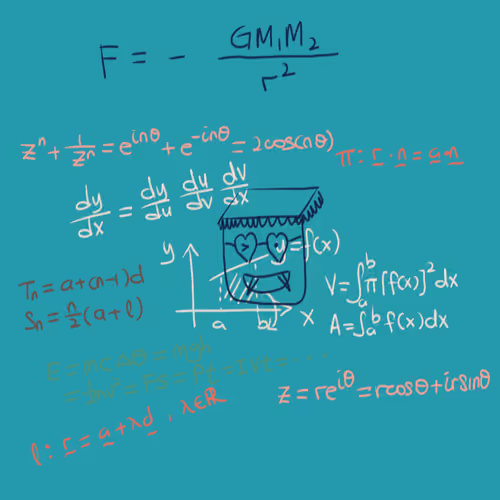 F = - GM₁M₂ / r²
zⁿ + 1/zⁿ = e^{inθ} + e^{-inθ} = 2cos(nθ)
π: r·n = a·n
dy/dx = dy/du du/dv dv/dx
y y=f(x)
Tn = a+(n-1)d
Sn = n/2(a+l)
V=∫ₐᵇπ[f(x)]²dx
a b x
A=∫ₐᵇf(x)dx
z = re^{iθ} = rcosθ + irsinθ
l: r = a+λd, λ∈ℝ